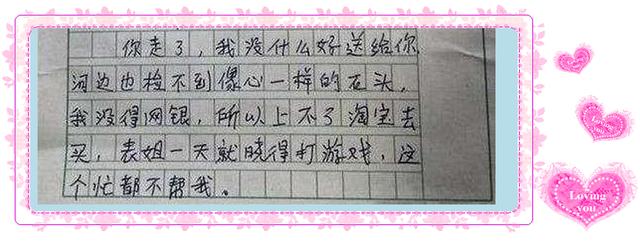 你走了，我没什么好送给你
河边也捡不到像心一样的石头，
我没得网银，所以上不了淘宝去
买，表姐一天就晓得打游戏，这
个忙都不帮我。
Loving
you